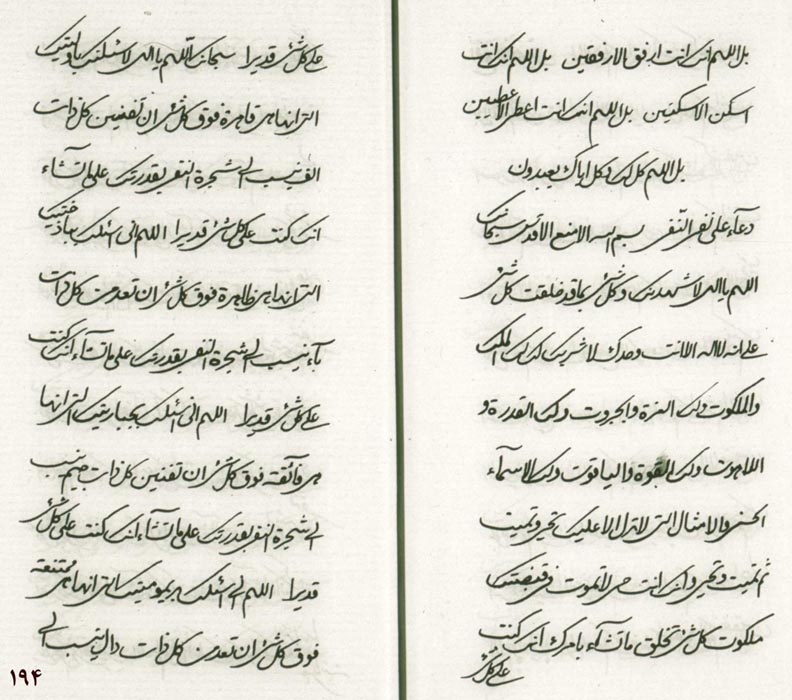 بل اللهم انک انت ارفق الارفقین بل اللهم انک انت
اسکن الاسکنین بل اللهم انک انت اعطی الاعطیین
بل اللهم کل لک و کل ایاک یعبدون
دعاء علی نفی النفی بسم الله الامنع الاقدس سبحانک
اللهم یا الهی لاشهدنک و کل شیء بما قد خلقت کل شیء
علی انه لا اله الا انت وحدک لا شریک لک لک الملک
والملکوت ولک العزة والجبروت ولک القدرة و
اللاهوت ولک القوة والیاقوت ولک الاسماء
الحسنی والامثال التی لا تدل الا علیک تحیی و تمیت
ثم تمیت و تحیی و انک انت حی لا تموت فی قبضتک
ملکوت کل شیء تخلق ما تشاء بامرک انک کنت
علی کل شیء
علی کل شیء قدیرا سبحانک اللهم یا الهی لاسئلنک
التی انها هی قاهرة فوق کل شیء ان تفنین کل ذات
الف ینسب الی شجرة النفی بقدرتک علی ما تشاء
انک کنت علی کل شیء قدیرا اللهم انی اسئلک
التی انها هی ظاهرة فوق کل شیء ان تعدمن کل ذات
باء ینسب الی شجرة النفی بقدرتک علی ما تشاء انک کنت
علی کل شیء قدیرا اللهم انی اسئلک بجباریتک التی انها
هی فائقة فوق کل شیء ان تفنین کل ذات جیم ینسب
الی شجرة النفی بقدرتک علی ما تشاء انک کنت علی کل شیء
قدیرا اللهم انی اسئلک بدیمومیتک التی انها هی ممتنعة
فوق کل شیء ان تعدمن کل ذات دال ینسب الی
۱۹۴